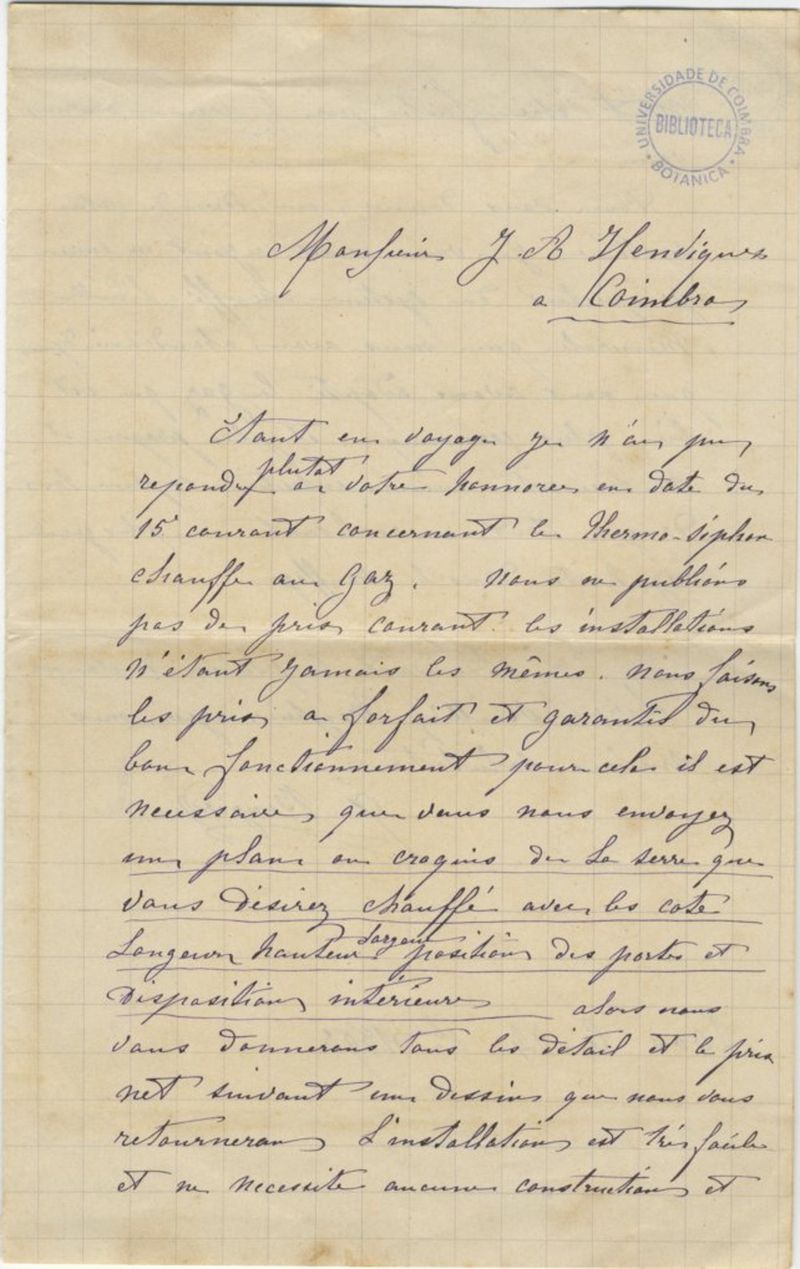 UNIVERSIDADE DE COIMBRA
BIBLIOTECA
BOTANICA
Monsieur J. A Hendiques
a Coimbra
Étant en voyage je n'ai pu
repondre plutot a votre honnoree en date du
15 courant concernant le Thermo-siphon
chauffe au Gaz. Nous ne publions
pas de prix courant les installations
n'étant jamais les mêmes. nous faisons
les prix a forfait et garantis du
bon fonctionnement pour cela il est
necessaire que vous nous envoyez
un plan ou croquis de la serre que
vous désirez chauffé avec les cote
Longeur hauteur largeur position des portes et
Disposition intérieure alors nous
vous donnerons tous les détail et le prix
net suivant un dessin que nous vous
retourneron L'installation est très facile
et ne necessite aucune construction et